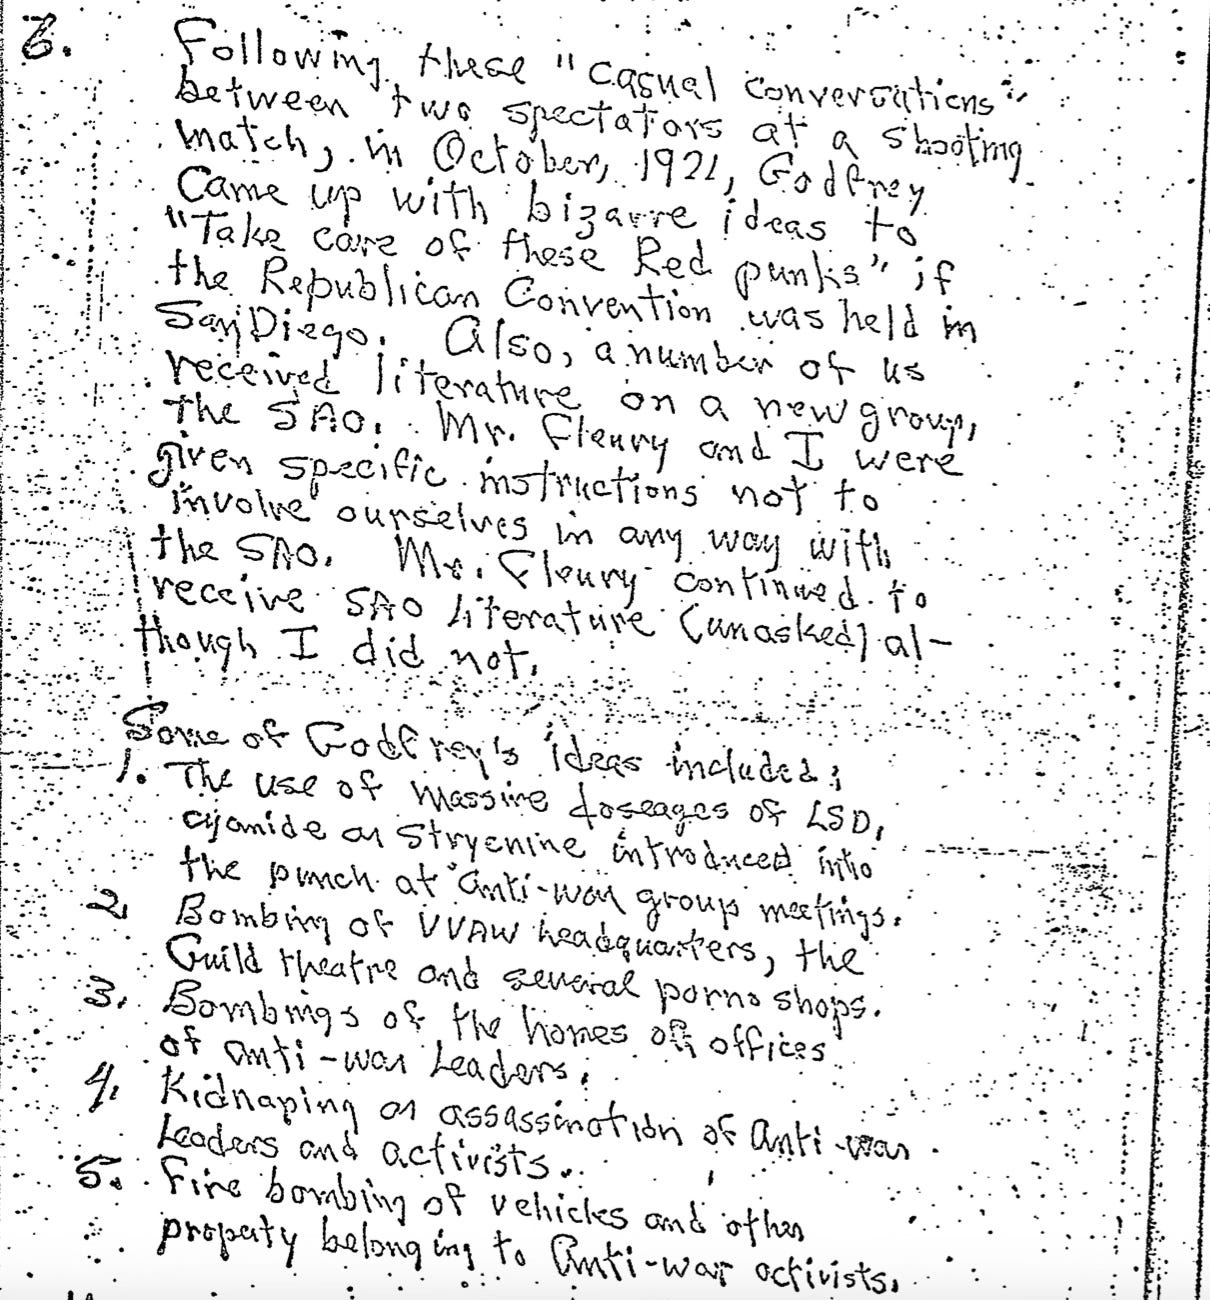 6. Following these "casual conversations"
between two spectators at a shooting
match, in October, 1921, Godfrey
came up with bizarre ideas to
"Take care of these Red punks" if
the Republican Convention was held in
San Diego. Also, a number of us
received literature on a new group,
the SAO. Mr. Fleury and I were
given specific instructions not to
involve ourselves in any way with
the SAO. Mr. Fleury continued to
receive SAO literature (unasked) al-
though I did not.
Some of Godfrey's ideas included:
1. The use of massive doseages of LSD,
cyanide or Strycnine introduced into
the punch at anti-war group meetings.
2. Bombing of VVAW headquarters, the
Guild theatre and several porno shops.
3. Bombings of the homes or offices
of anti-war leaders.
4. Kidnaping or assassination of Anti-war
Leaders and activists.
5. Fire bombing of vehicles and other
property belonging to Anti-war activists.